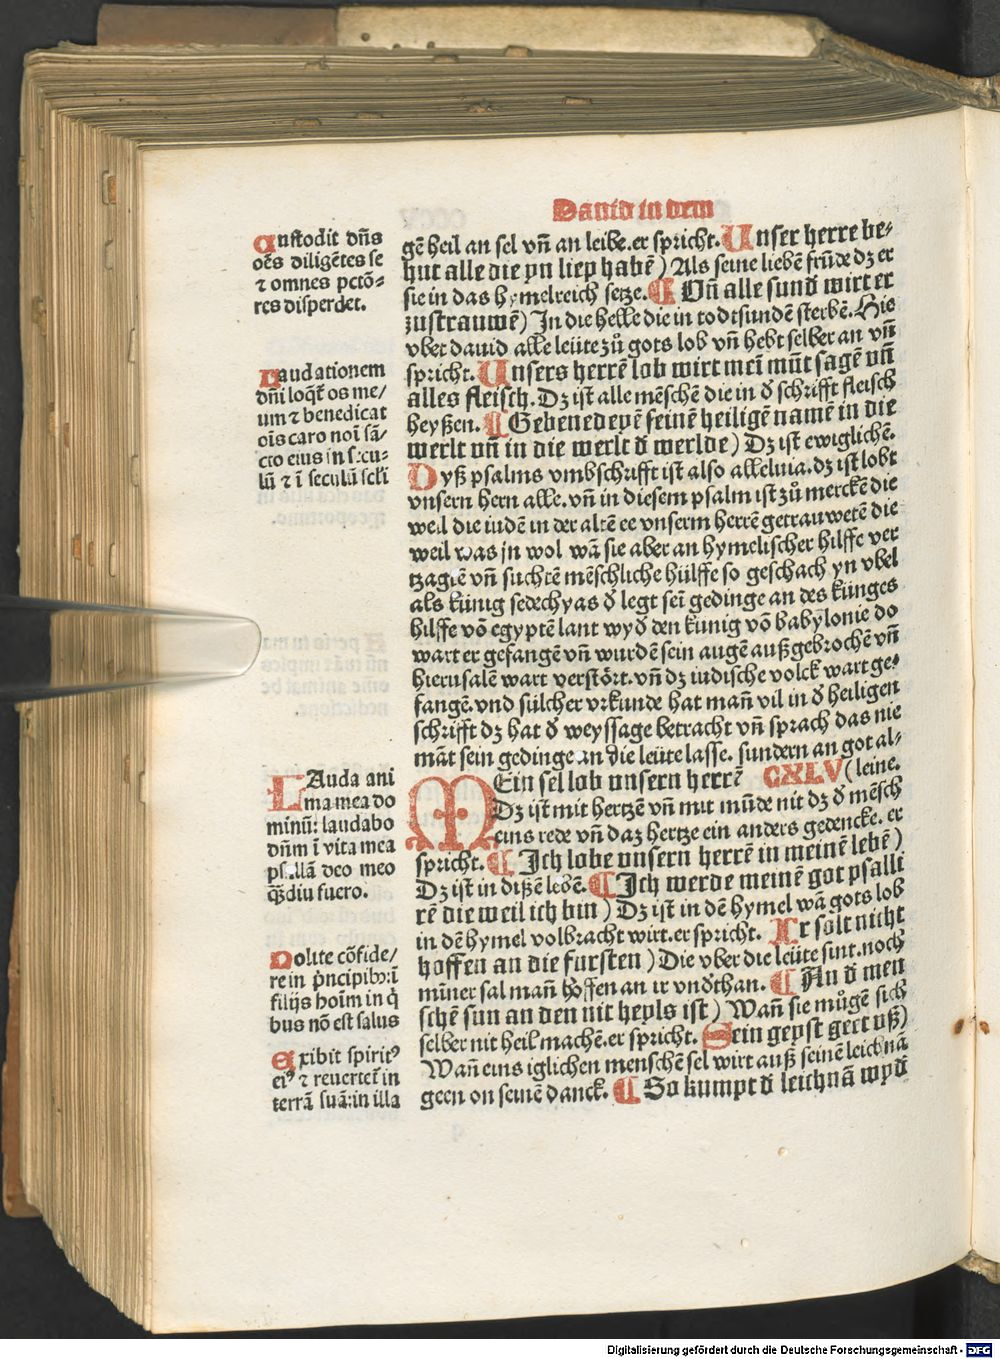 Dauid in dem
Custodit dñs
oẽs diligẽtes se
⁊ omnes pctõ-
res disperdet.
Laudationem
dñi loq̃t̃ os me/
um ⁊ benedicat
oĩs caro noĩ sã/
cto eius in secu-
lũ ⁊ ĩ seculũ scľi
Lauda ani
ma mea do
minũ: laudabo
dñm ĩ vita mea
psallã deo meo
q̃diu fuero.
Nolite cõfide/
re in pñcipibꝰ: ĩ
filijs hoĩm in q̃
bus nõ est salus
Exibit spiritꝰ
eiꝰ ⁊ reuertet̃ in
terrã suã: in illa
gẽ heil an sel vñ an leibe. er spricht. Unser herre be-
hut alle die yn liep habẽ) Als seine liebẽ frũde dz er
sie in das hymelreich setze. ¶ Vñ alle sund wirt er
zustrauwẽ) In die helle die in todtsundẽ sterbẽ. Hie
vber dauid alle leüte zů gots lob vñ hebt selber an vñ
spricht. Unsers herrẽ lob wirt meĩ mũt sagẽ vñ
alles fleisch. Dz ist alle mẽschẽ die in đ schrifft fleisch
heyßen. ¶ Gebenedeyẽ seinẽ heiligẽ namẽ in die
werlt vñ in die werlt đ werlde) Dz ist ewiglichẽ.
Dyß psalms vmbschrifft ist also alleluia. dz ist lobt
vnsern hern alle. vñ in diesem psalm ist zů merckẽ die
weil die iudẽ in der altẽ ee vnserm herrẽ getrauwetẽ die
weil was jn wol wã sie aber an hymelischer hilffe ver
tzagtẽ vñ suchtẽ mẽschliche hülffe so geschach yn vbel
als kũnig sedechyas đ legt seĩ gedinge an des kũnges
hilffe võ egyptẽ lant wyđ den kunig võ babylonie do
wart er gefangẽ vñ wurdẽ sein augẽ außgebrochẽ vñ
hierusalẽ wart verstört. vñ dz iudische volck wart ge-
fangẽ. vnd sülcher vrkunde hat mañ vil in đ heiligen
schrifft dz hat đ weyssage betracht vñ sprach das nie
mãt sein gedinge an die leüte lasse. sundern an got al-
Mein sel lob vnsern herrẽ CXLV (leine.
Dz ist mit hertzẽ vñ mit mũde nit dz đ mẽsch
eins rede vñ daz hertze ein anders gedencke. er
spricht. ¶ Ich lobe vnsern herrẽ in meinẽ lebẽ)
Dz ist in dißẽ lebẽ. ¶ Ich werde meinẽ got psalli
rẽ die weil ich bin) Dz ist in dẽ hymel wã gots lob
in dẽ hymel volbracht wirt. er spricht. Ir solt nicht
hoffen an die fursten) Die vber die leüte sint. noch
mĩner sal mañ hoffen an ir vnđthan. ¶ An đ men
schẽ sun an den nit heyls ist) Wañ sie mügẽ sich
selber nit heil machẽ. er spricht. Sein geyst geet vß)
Wañ eins iglichen menschẽ sel wirt auß seinẽ leichnã
geen on seinẽ danck. ¶ So kumpt đ leichnã wyđ
Digitalisierung gefördert durch die Deutsche Forschungsgemeinschaft - DFG